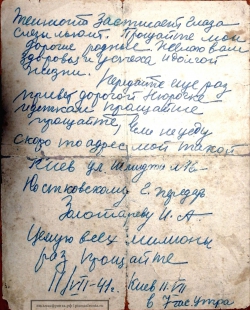 темнота застилает глаза
слезы льют. Прощайте мои
дорогие родные Желаю вам
здоровья и успеха и долгой
жизни.
Передайте еще раз
привет дорогой Нюрочке
прощайте
прощайте, если не уеду
скоро то адрес мой такой
Киев ул.
Костковскому Е. передать
Золотареву И. А
Целую всех миллионы
раз прощайте
11/VII-41 г. Киев 11-VII
в 7 час. утра